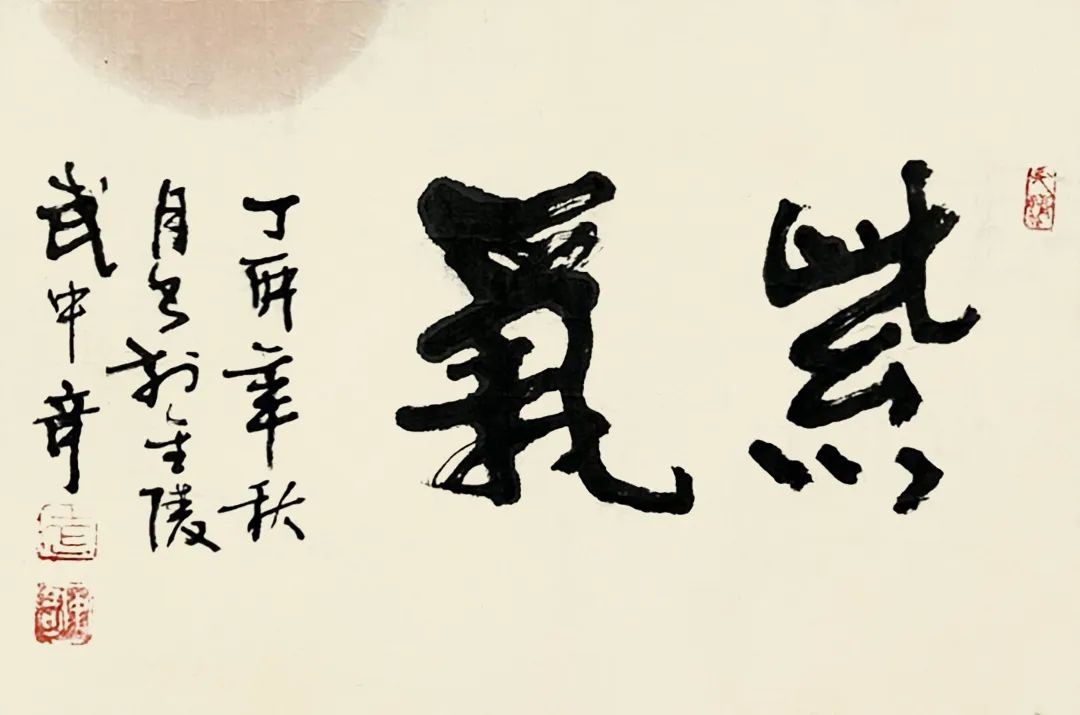 紫氣
丁卯年秋
月书於金陵
武中奇